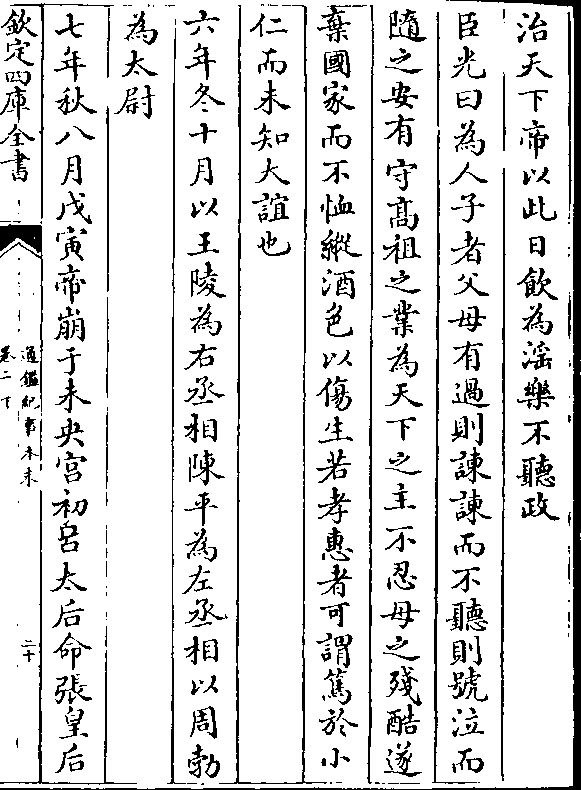 治天下帝以此日飲為淫樂不聽政
臣光曰為人子者父母有過則諫諫而不聽則號泣而
隨之安有守髙祖之業為天下之主不忍母之殘酷遂
棄國家而不恤縱酒色以傷生若孝惠者可謂篤於小
仁而未知大誼也
六年冬十月以王陵為右丞相陳平為左丞相以周勃
為太尉
七年秋八月戊寅帝崩于未央宫初呂太后命張皇后
欽定四庫全書
通鑑紀事本末
卷二下
二十